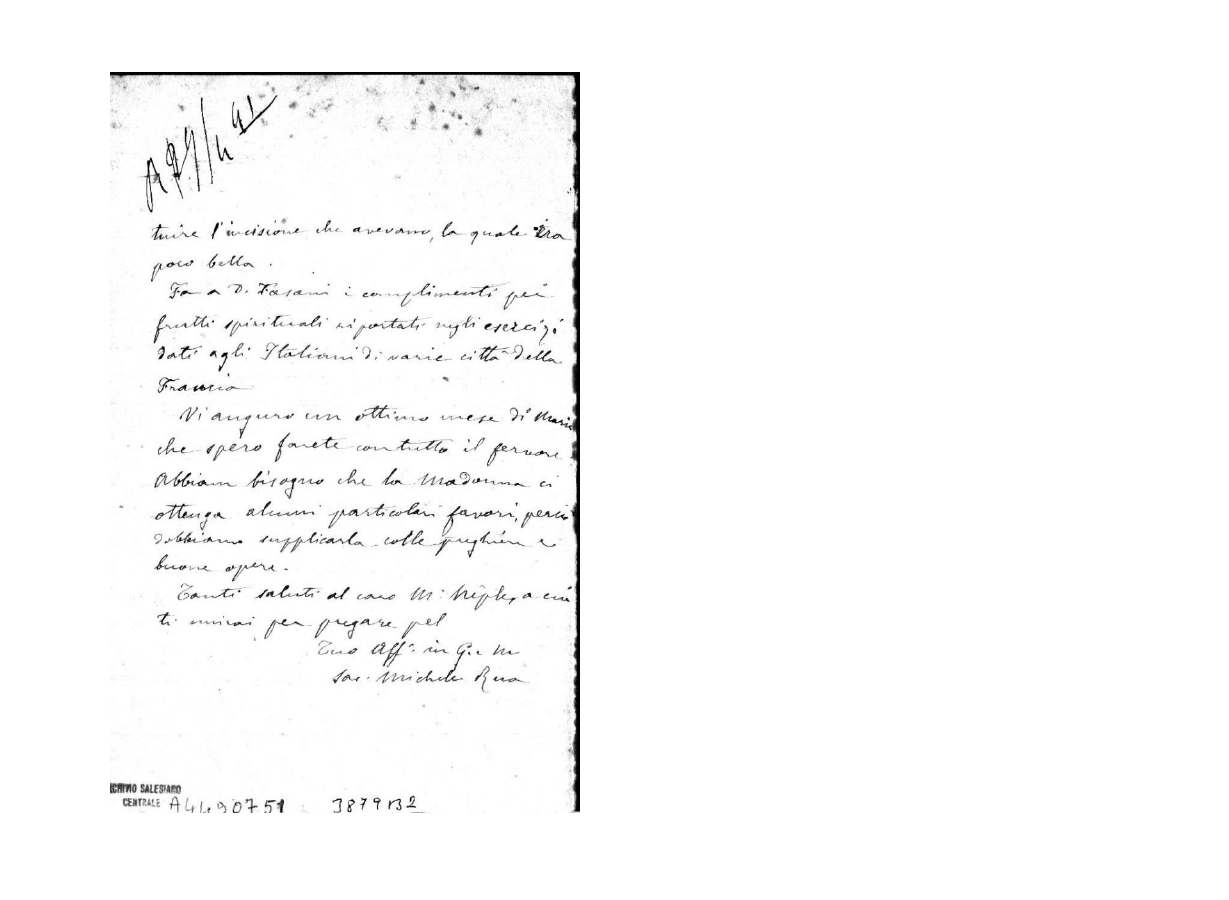 A 29/4 91
tuire l'incisione che avevamo, la quale era
poco bella.
Fa a D. Fasani i complimenti pei
frutti spirituali riportati negli esercizi
dati agli Italiani di varie città della
Francia
Vi auguro un ottimo mese di Maria
che spero farete con tutto il fervore
Abbiam bisogno che la Madonna ci
ottenga alcuni particolari favori, perciò
dobbiamo supplicarla colle preghiere e
buone opere.
Tanti saluti al caro M: a cui
ti unirai per pregare pel
Tuo Aff. in G. e M
Sac. Michele Rua
ARCHIVIO SALESIANO
CENTRALE A4490751 3879 B2